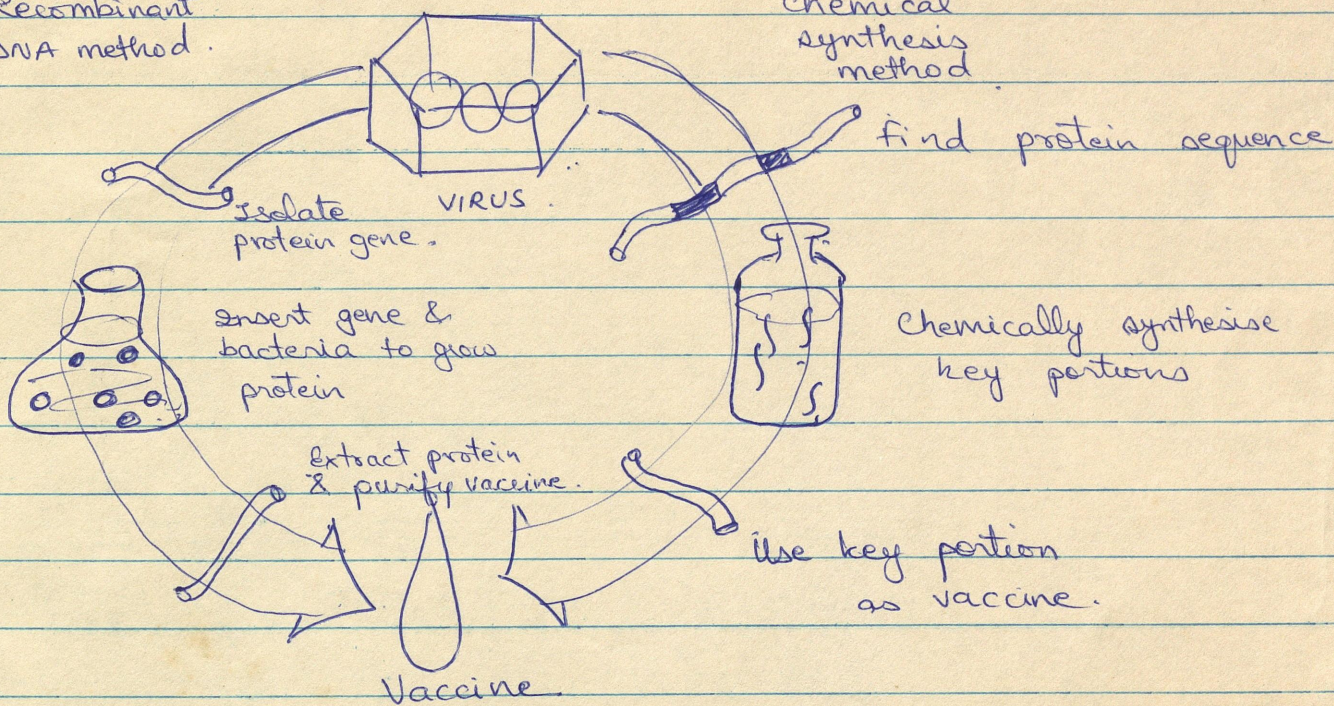 Recombinant
DNA method.
Chemical
synthesis
method.
find protein sequence
VIRUS.
Isolate
protein gene.
Insert gene &
bacteria to grow
protein
Chemically synthesise
key portions
Extract protein
& purify vaccine.
Use key portion
as vaccine.
Vaccine.